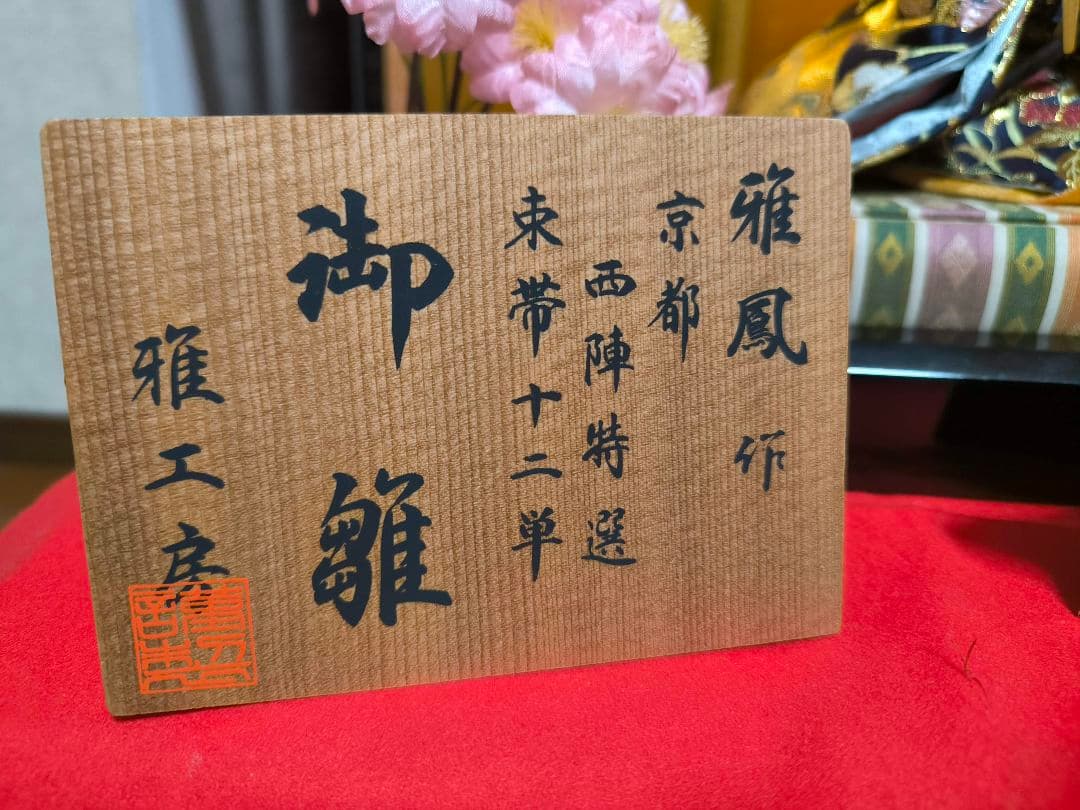 雅鳳作
京都
西陣特選
束帯十二単
御雛
雅工房